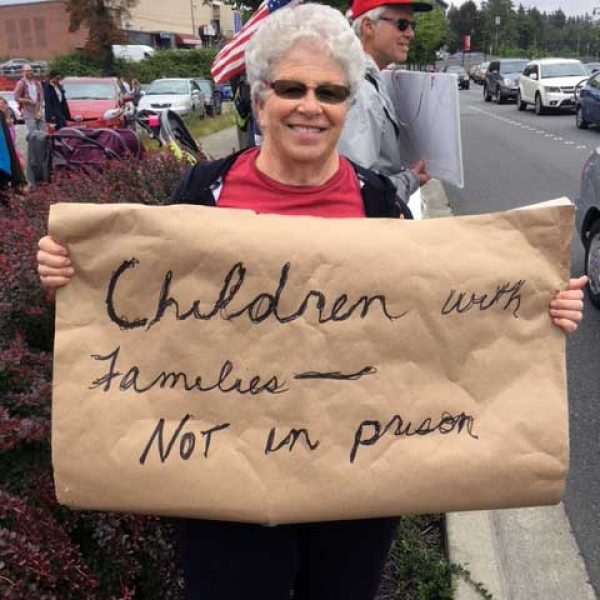 Children with
Families —
Not in prison